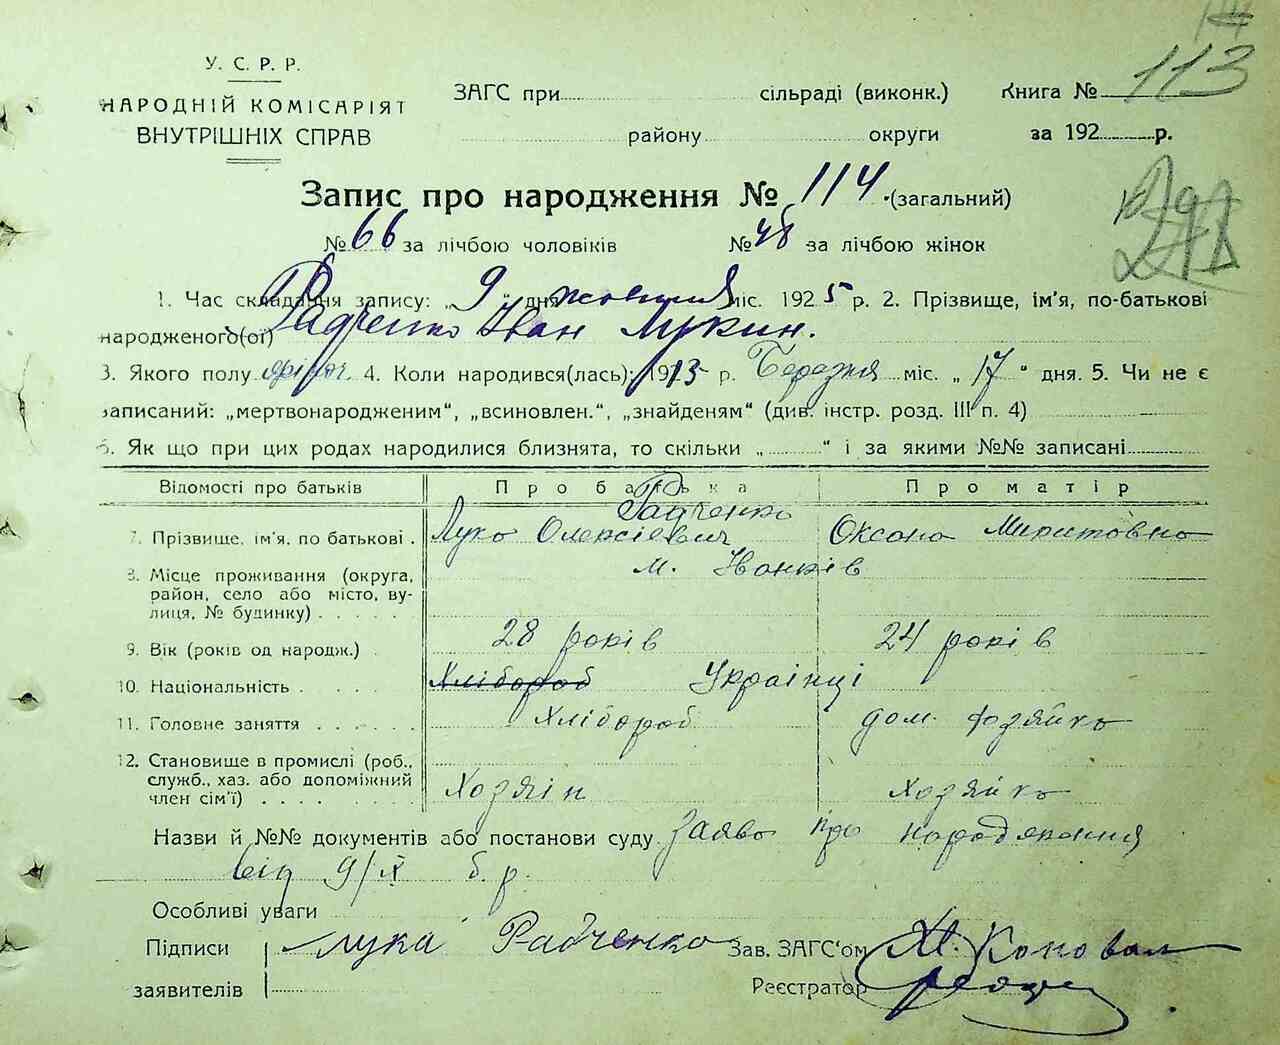 У. С. Р. Р.
НАРОДНІЙ КОМІСАРІЯТ
ВНУТРІШНІХ СПРАВ
ЗАГС при сільраді (виконк.) Книга № 113
району округи за 192 р.
Запис про народження № 114 (загальний)
№ 66 за лічбою чоловіків № 48 за лічбою жінок
1. Час складання запису: „ 9 " дня жовтня міс. 1925 р. 2. Прізвище, ім'я, по-батькові
народженого(ої) Радченко Іван Лукич.
3. Якого полу 4. Коли народився(лась): 1915 р. Березня міс. „ 17 " дня. 5. Чи не є
записаний: „мертвонародженим", „всиновлен.", „знайденям" (див. інстр. розд. III п. 4)
6. Як що при цих родах народилися близнята, то скільки „ " і за якими №№ записані
Відомості про батьків Про батька Про матір
Радченко
7. Прізвище, ім'я, по батькові . Лука Олексієвич Оксана Микитовна
8. Місце проживання (округа, м. Іванків
район, село або місто, ву-
лиця, № будинку) . . . . .
9. Вік (років од народж.) . 28 років 24 років
10. Національність . . . . . Хлібороб Украінці
11. Головне заняття . . . . Хлібороб дом. хозяйка
12. Становище в промислі (роб.,
служб., хаз. або допоміжний
член сім'ї) . . . . . Хозяін Хозяйка
Назви й №№ документів або постанови суду. Заява про народження
від 9/X б. р.
Особливі уваги
Підписи Лука Радченко Зав. ЗАГС'ом Коновал
заявителів Реєстратор